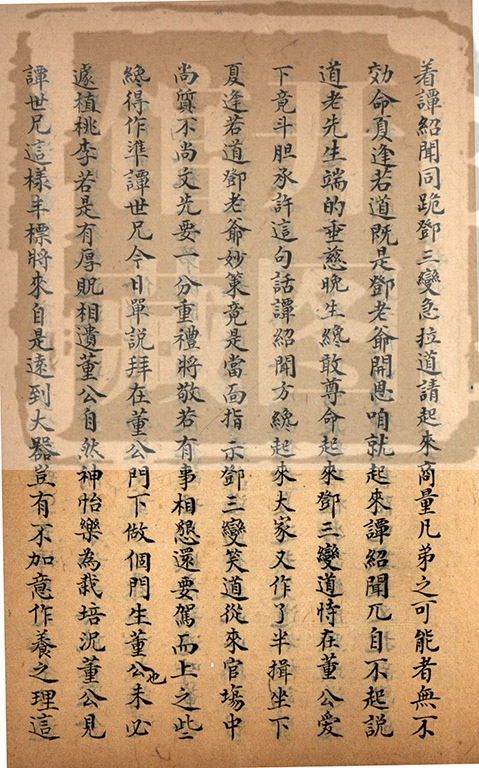 着譚紹聞同跪鄧三變急拉道請起來商量凡弟之可能者無不
効命夏逢若道既是鄧老爺開恩咱就起來譚紹聞兀自不起說
道老先生端的垂慈晚生纔敢尊命起來鄧三變道恃在董公愛
下竟斗胆承許這句話譚紹聞方纔起來大家又作了半揖坐下
夏逢若道鄧老爺妙策竟是當面指示鄧三變笑道從來官塲中
尚質不尚文先要一分重禮將敬若有事相懇還要駕而上之些
纔得作準譚世兄今日單說拜在董公門下做個門生董公也未必
遽植桃李若是有厚貺相遺董公自然神怡樂為栽培況董公見
譚世兄這樣丰標將來自是遠到大器豈有不加意作養之理這